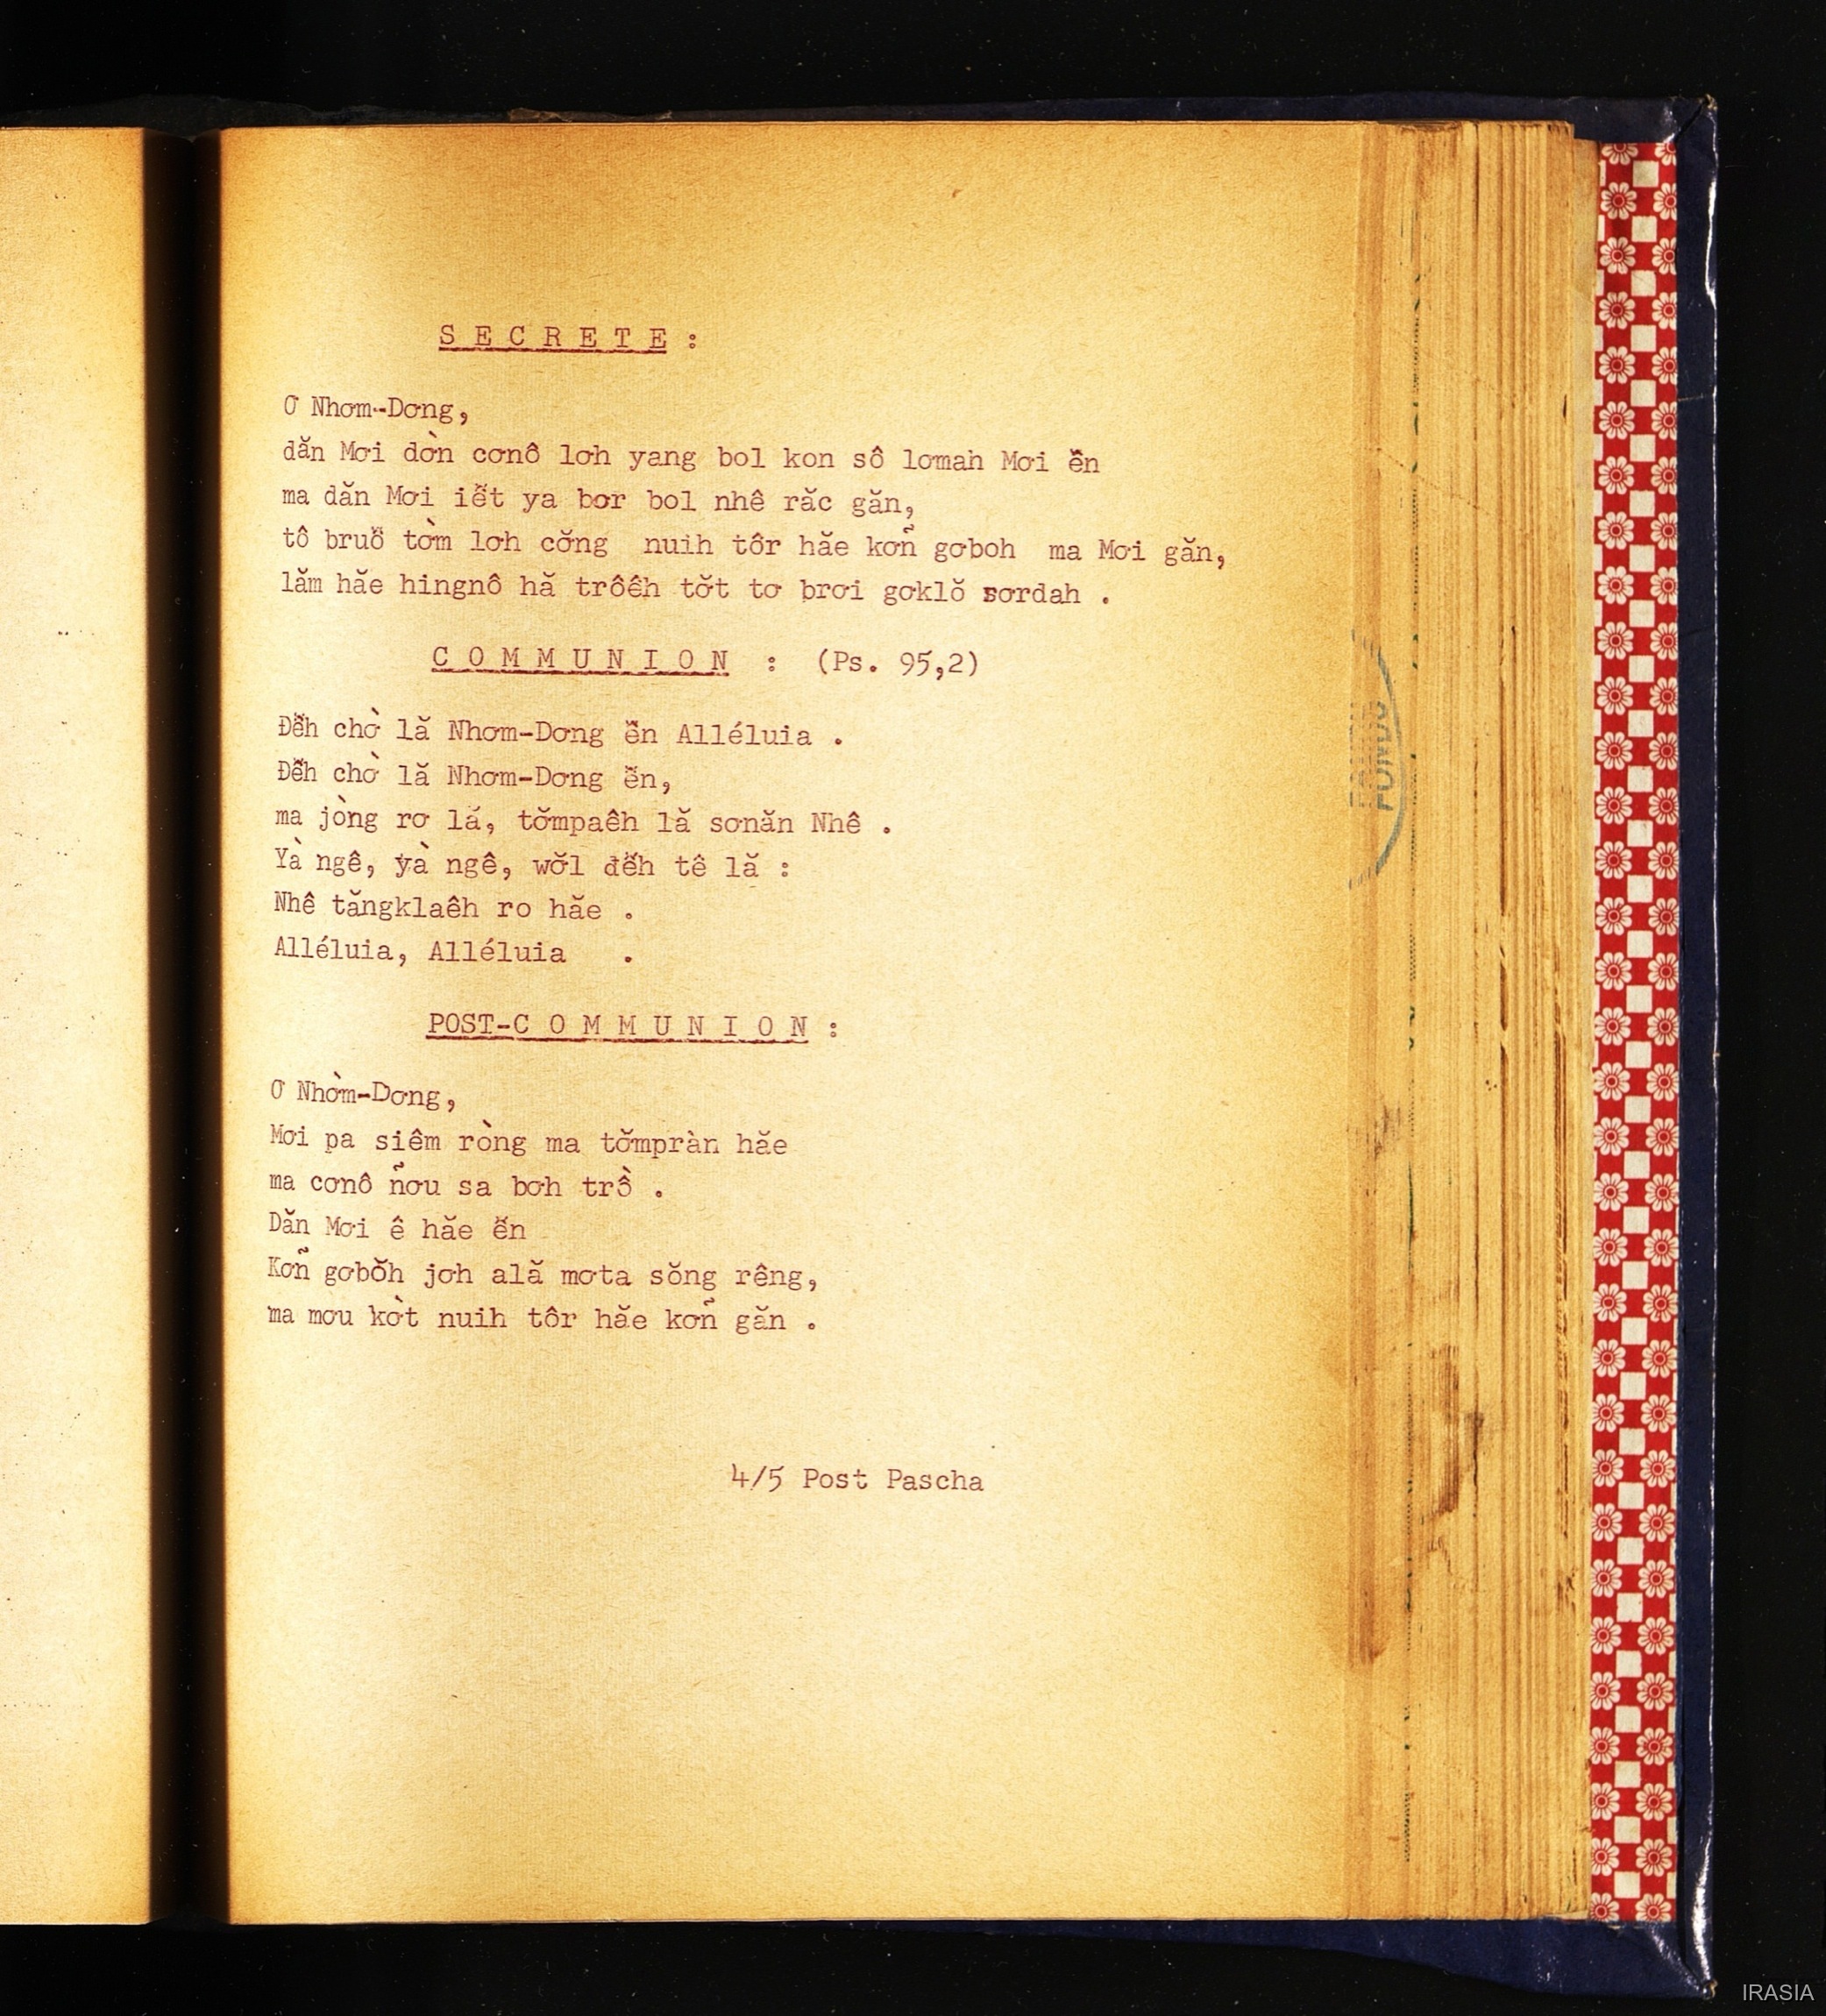 S E C R E T E :
Ơ Nhơm-Dơng,
dăn Mơi dờn cơnô lơh yang bol kon sô lơmah Mơi ê̆n
ma dăn Mơi iê̆t ya bơr bol nhê răc găn,
tô bruô̆ tờm lơh cơ̆ng nuih tôr hăe kơñ gơboh ma Mơi găn,
lăm hăe hingnô hă trôê̆h tơ̆t tơ brơi gơklŏ sơrdah .
C O M M U N I O N : (Ps. 95,2)
Đê̆h chờ lă Nhơm-Dơng ê̆n Alléluia .
Đê̆h chờ lă Nhơm-Dơng ê̆n,
ma jòng rơ lă, tơ̆mpaêh lă sơnăn Nhê .
Yà ngê, yà ngê, wơ̆l đê̆h tê lă :
Nhê tăngklaêh ro hăe .
Alléluia, Alléluia .
POST-C O M M U N I O N :
Ơ Nhờm-Dơng,
Mơi pa siêm ròng ma tơ̆mpràn hăe
ma cơnô ñơu sa bơh trồ .
Dăn Mơi ê hăe ê̆n
Kơñ gơbŏh jơh ală mơta sŏng rêng,
ma mơu kờt nuih tôr hăe kơñ găn .
4/5 Post Pascha
FONDS
IRASIA